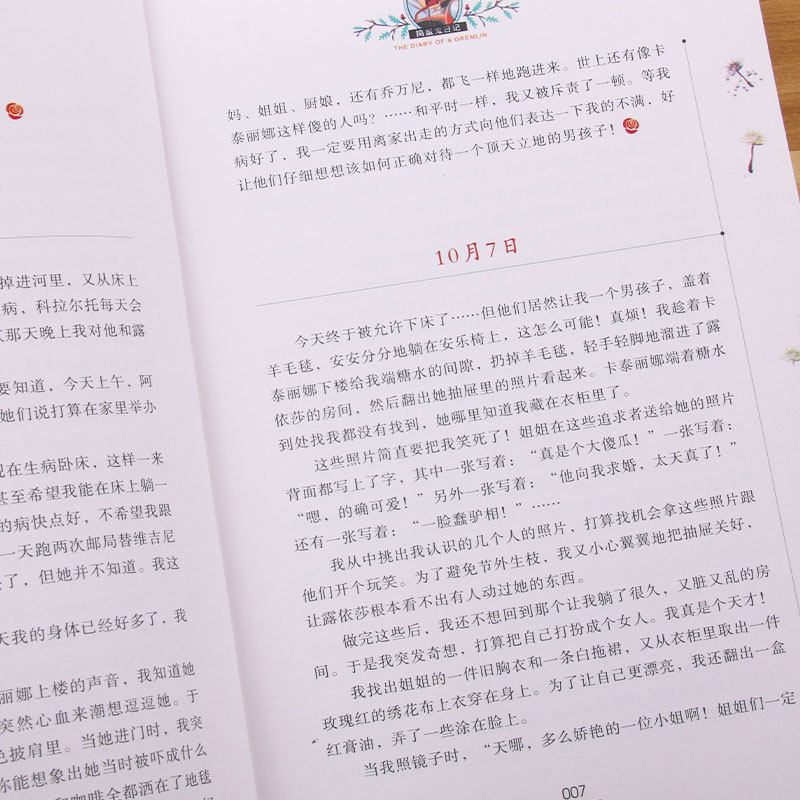 掉进河里，又从床上
病，科拉尔托每天会
那天晚上我对他和露
要知道，今天上午，阿
她们说打算在家里举办
现在生病卧床，这样一来
甚至希望我能在床上躺一
的病快点好，不希望我跟
一天跑两次邮局替维吉尼
了，但她并不知道。我这
天我的身体已经好多了，我
丽娜上楼的声音，我知道她
突然心血来潮想逗逗她。于
色披肩里。当她进门时，我突
你能想象出她当时被吓成什么
和咖啡全都洒在了地毯
捣蛋鬼日记
THE DIARY OF A GREMLIN
妈、姐姐、厨娘，还有乔万尼，都飞一样地跑进来。世上还有像卡
泰丽娜这样傻的人吗？……和平时一样，我又被斥责了一顿。等我
病好了，我一定要用离家出走的方式向他们表达一下我的不满，好
让他们仔细想想该如何正确对待一个顶天立地的男孩子！
10月7日
今天终于被允许下床了……但他们居然让我一个男孩子，盖着
羊毛毯，安安分分地躺在安乐椅上，这怎么可能！真烦！我趁着卡
泰丽娜下楼给我端糖水的间隙，扔掉羊毛毯，轻手轻脚地溜进了露
依莎的房间，然后翻出她抽屉里的照片看起来。卡泰丽娜端着糖水
到处找我都没有找到，她哪里知道我藏在衣柜里了。
这些照片简直要把我笑死了！姐姐在这些追求者送给她的照片
背面都写上了字，其中一张写着：“真是个大傻瓜！”一张写着：
“嗯，的确可爱！”另外一张写着：“他向我求婚，太天真了！”
还有一张写着：“一脸蠢驴相！”……
我从中挑出我认识的几个人的照片，打算找机会拿这些照片跟
他们开个玩笑。为了避免节外生枝，我又小心翼翼地把抽屉关好，
让露依莎根本看不出有人动过她的东西。
做完这些后，我还不想回到那个让我躺了很久，又脏又乱的房
间。于是我突发奇想，打算把自己打扮成个女人。我真是个天才！
我找出姐姐的一件旧胸衣和一条白拖裙，又从衣柜里取出一件
玫瑰红的绣花布上衣穿在身上。为了让自己更漂亮，我还翻出一盒
红膏油，弄了一些涂在脸上。
当我照镜子时，“天哪，多么娇艳的一位小姐啊！姐姐们一定
007